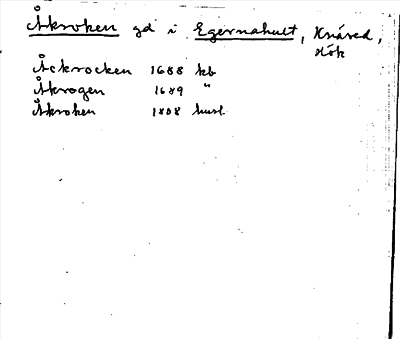 Åkroken gd i Egernahult, Knäred,
Hök
Åckrocken 1688 kb
Åkrogen 1689 "
Åkroken 1808 husl.